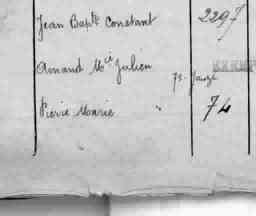 Jean Bapte Constant 2297
Amand Mie Julien
Pierre Marie " 74